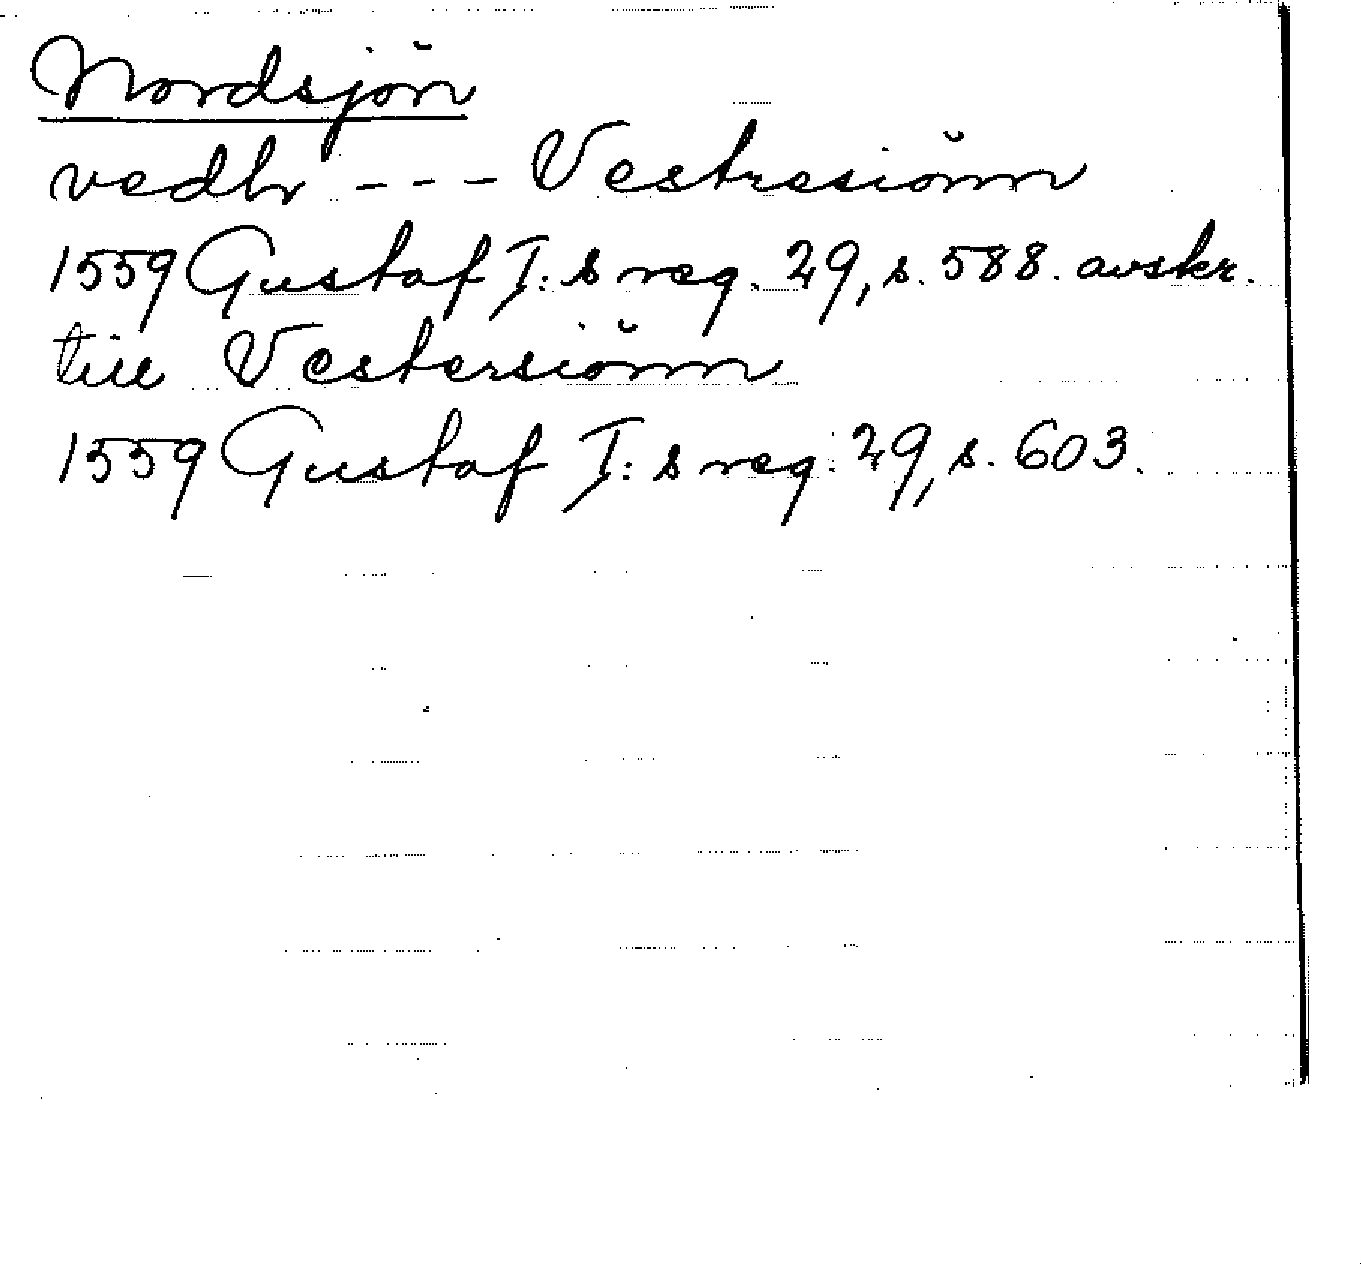 Nordsjön
vedhr --- Vestresiönn
1559 Gustaf I:s reg. 29, s. 588. avskr.
till Vestersiönn
1559 Gustaf I:s reg. 29, s. 603.